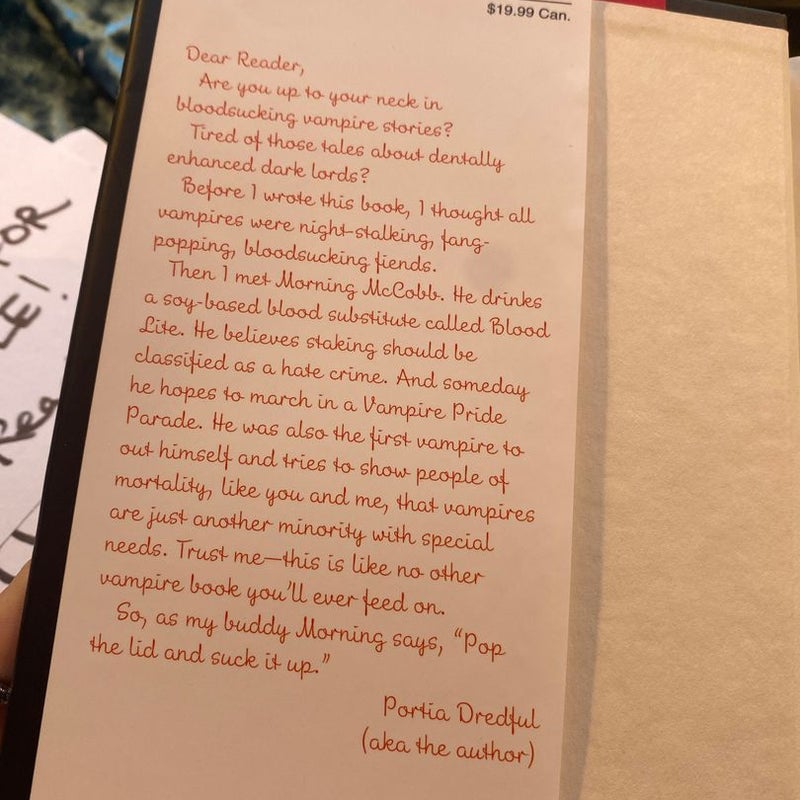 $19.99 Can.
Dear Reader,
Are you up to your neck in
bloodsucking vampire stories?
Tired of those tales about dentally
enhanced dark lords?
Before I wrote this book, I thought all
vampires were night-stalking, fang-
popping, bloodsucking fiends.
Then I met Morning McCobb. He drinks
a soy-based blood substitute called Blood
Lite. He believes staking should be
classified as a hate crime. And someday
he hopes to march in a Vampire Pride
Parade. He was also the first vampire to
out himself and tries to show people of
mortality, like you and me, that vampires
are just another minority with special
needs. Trust me—this is like no other
vampire book you'll ever feed on.
So, as my buddy Morning says, “Pop
the lid and suck it up.”
Portia Dredful
(aka the author)